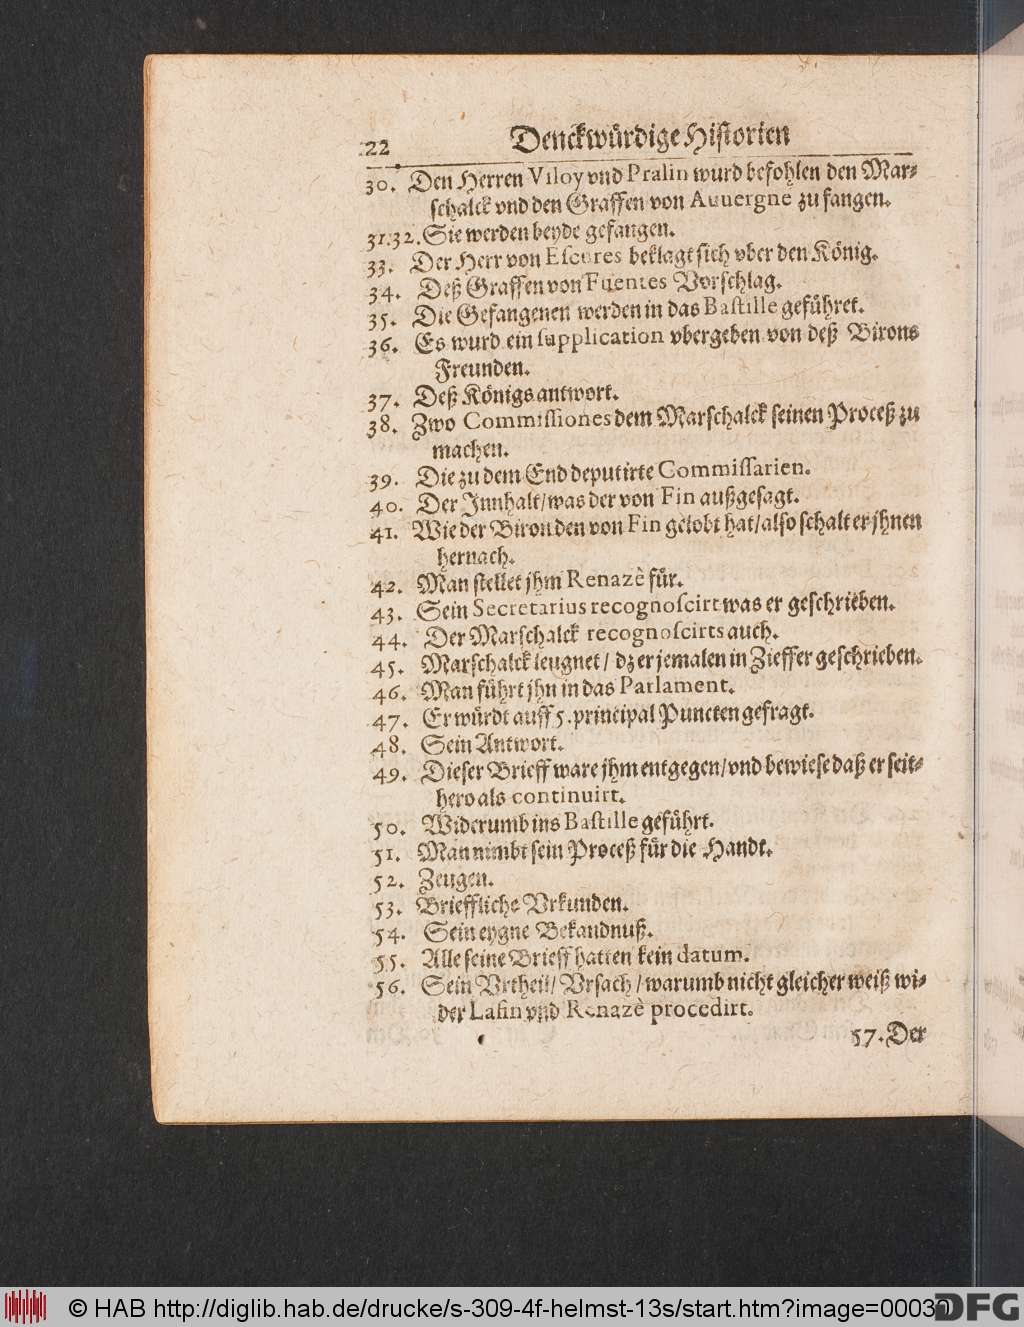 22 Denckwürdige Historien
30. Den Herren Viloy vnd Pralin wurd befohlen den Mar-
schalck vnd den Graffen von Auuergne zu fangen.
31.32. Sie werden beyde gefangen.
33. Der Herr von Eſcures beklagt sich vber den König.
34. Deß Graffen von Fuentes Vorschlag.
35. Die Gefangenen werden in das Baſtille geführet.
36. Es wurd ein ſupplication vbergeben von deß Birons
Freunden.
37. Deß Königs antwort.
38. Zwo Commiſſiones dem Marschalck seinen Proceß zu
machen.
39. Die zu dem End deputirte Commiſſarien.
40. Der Innhalt/was der von Fin außgesagt.
41. Wie der Biron den von Fin gelobt hat/also schalt er jhnen
hernach.
42. Man stellet jhm Renazè für.
43. Sein Secretarius recognoſcirt was er geschrieben.
44. Der Marschalck recognoſcirts auch.
45. Marschalck leugnet / dz er jemalen in Zieffer geschrieben.
46. Man führt jhn in das Parlament.
47. Er würdt auff 5. principal Puncten gefragt.
48. Sein Antwort.
49. Dieser Brieff ware jhm entgegen/vnd bewiese daß er seit-
hero als continuirt.
50. Widerumb ins Baſtille geführt.
51. Man nimbt sein Proceß für die Handt.
52. Zeugen.
53. Brieffliche Vrkunden.
54. Sein eygne Bekandnuß.
55. Alle seine Brieff hatten kein datum.
56. Sein Vrtheil/ Vrsach / warumb nicht gleicher weiß wi-
der Lafin vnd Renazè procedirt.
57. Der
© HAB http://diglib.hab.de/drucke/s-309-4f-helmst-13s/start.htm?image=00030
DFG